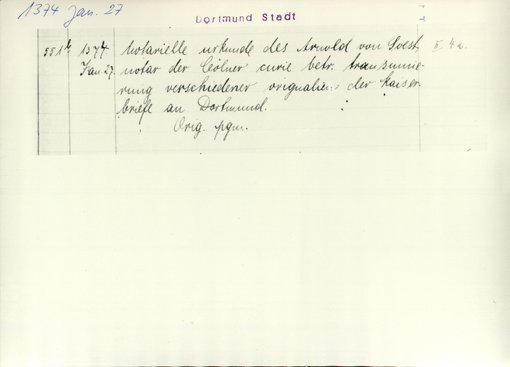 1374 Jan. 27
Dortmund Stadt
551b 1374 Notarielle urkunde des Arnold von Soest, II. 4a.
Jan 27. notar der Cölner curie betr. transsumie-
rung verschiedener originalien der kaiser-
briefe an Dortmund.
Orig. pgm.